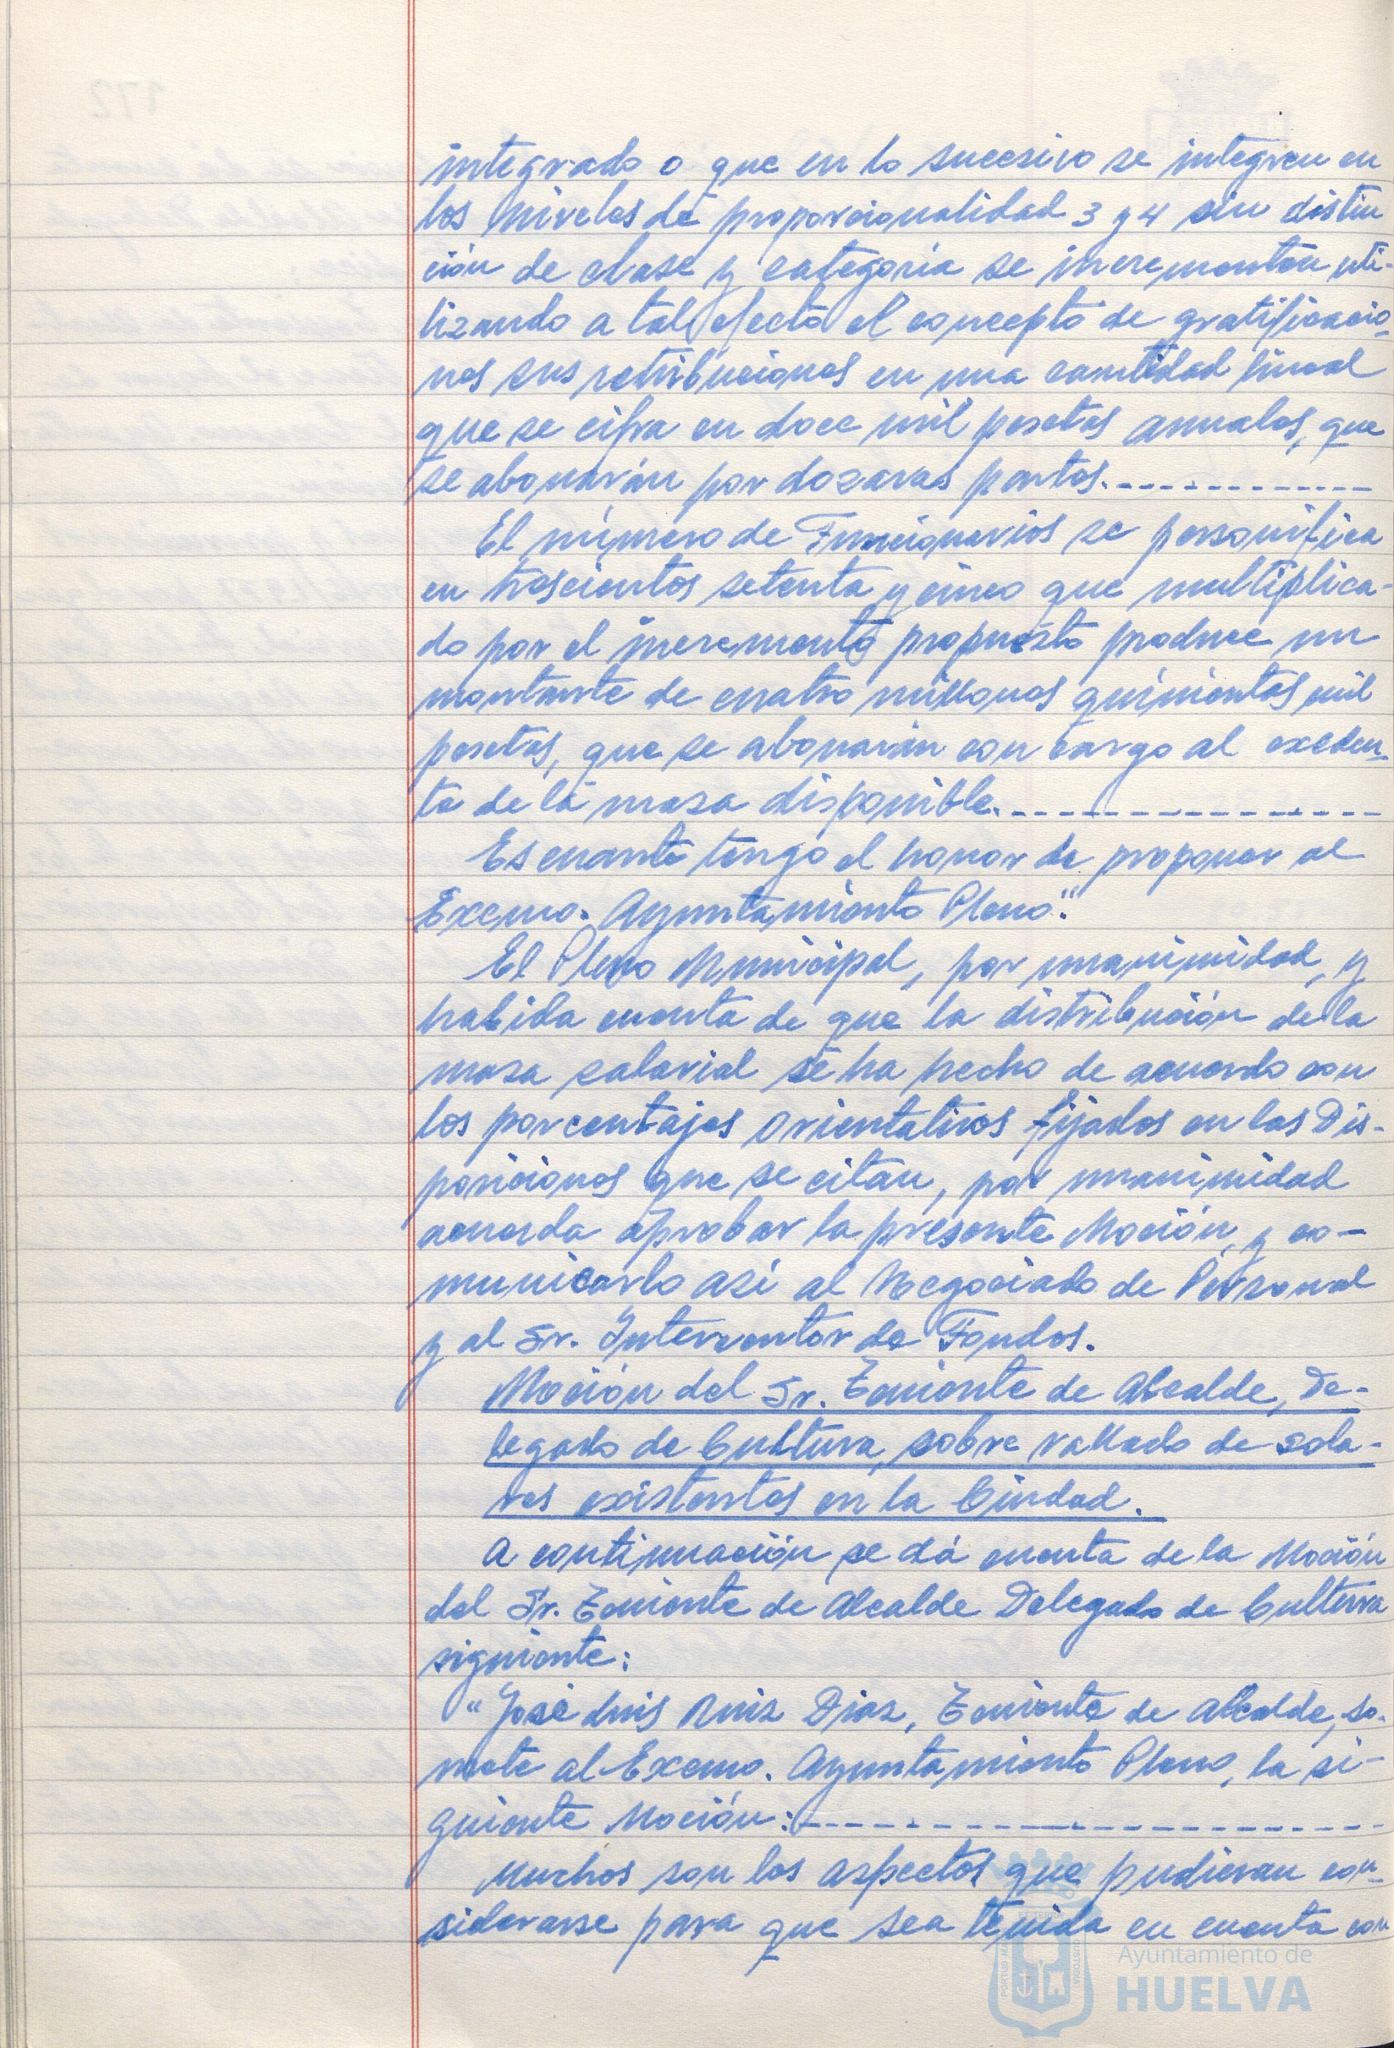 integrado o que en lo sucesivo se integren en
los niveles de proporcionalidad 3 y 4 sin distin
ción de clase y categoría se incrementen uti-
lizando a tal efecto el concepto de gratificacio-
nes sus retribuciones en una cantidad lineal
que se cifra en doce mil pesetas anuales, que
se abonarán por dozavas partes.
El número de Funcionarios se personifica
en trescientos setenta y cinco que multiplica-
do por el incremento propuesto produce un
montante de cuatro millones quinientas mil
pesetas, que se abonarán con cargo al exceden-
te de la masa disponible.
Es cuanto tengo el honor de proponer al
Excmo. Ayuntamiento Pleno".
El Pleno Municipal, por unanimidad, y
habida cuenta de que la distribución de la
masa salarial se ha hecho de acuerdo con
los porcentajes orientativos fijados en las Dis-
posiciones que se citan, por unanimidad
acuerda aprobar la presente Moción, y co-
municarlo así al Negociado de Personal
y al Sr. Interventor de Fondos.
Moción del Sr. Teniente de Alcalde, De-
legado de Cultura, sobre vallado de sola-
res existentes en la Ciudad.
A continuación se dá cuenta de la Moción
del Sr. Teniente de Alcalde Delegado de Cultura
siguiente:
"José Luis Ruiz Diaz, Teniente de Alcalde, so-
mete al Excmo. Ayuntamiento Pleno, la si-
guiente Moción:
Muchos son los aspectos que pudieran con-
siderarse para que sea tenida en cuenta con
Ayuntamiento de
HUELVA